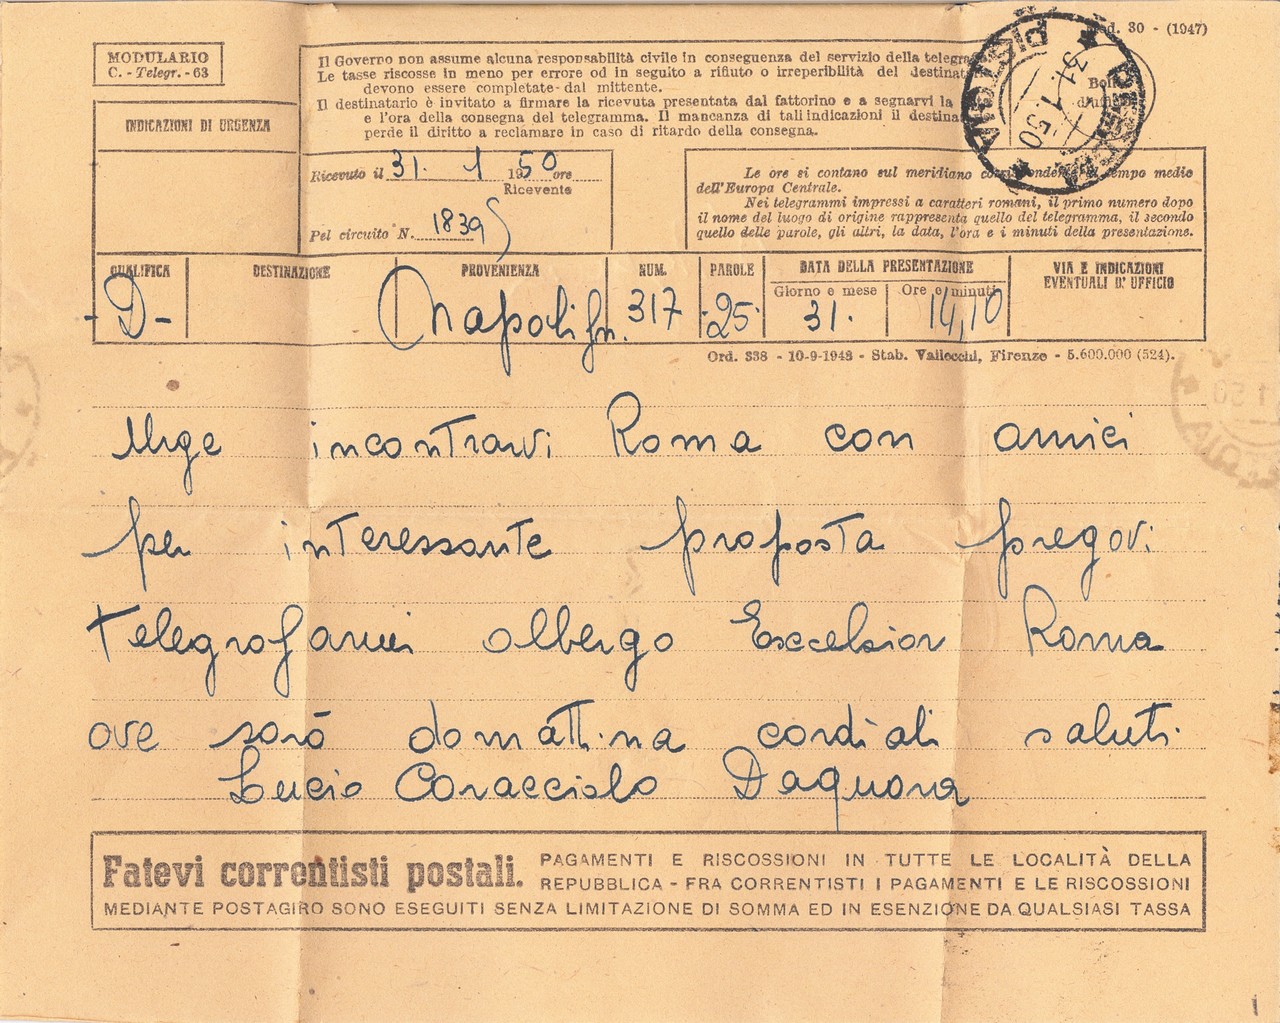 MODULARIO
C. - Telegr. - 63
30 - (1947)
INDICAZIONI DI URGENZA
Il Governo non assume alcuna responsabilità civile in conseguenza del servizio della
Le tasse riscosse in meno per errore od in seguito a rifiuto o irreperibilità del
devono essere completate dal mittente.
Il destinatario è invitato a firmare la ricevuta presentata dal fattorino e a segnarvi la
e l'ora della consegna del telegramma. Il mancanza di tali indicazioni il
perde il diritto a reclamare in caso di ritardo della consegna.
PISTOIA
31.1.50
Ricevuto il 31. 1 1950 ore
Ricevente
Pel circuito N. 1839
Le ore si contano sul meridiano tempo medio
dell'Europa Centrale.
Nei telegrammi impressi a caratteri romani, il primo numero dopo
il nome del luogo di origine rappresenta quello del telegramma, il secondo
quello delle parole, gli altri, la data, l'ora e i minuti della presentazione.
QUALIFICA DESTINAZIONE PROVENIENZA NUM. PAROLE DATA DELLA PRESENTAZIONE VIA E INDICAZIONI
EVENTUALI D'UFFICIO
Giorno e mese Ore e minuti
-D- Napoli fn. 317 25 31. 14,10
Ord. 338 - 10-9-1948 - Stab. Vallecchi, Firenze - 5.600.000 (524).
Urge incontrarvi Roma con amici
per interessante proposta pregovi
telegrafarmi albergo Excelsior Roma
ove sarò domattina cordiali saluti
Lucio Caracciolo Daquara
Fatevi correntisti postali. PAGAMENTI E RISCOSSIONI IN TUTTE LE LOCALITÀ DELLA
REPUBBLICA - FRA CORRENTISTI I PAGAMENTI E LE RISCOSSIONI
MEDIANTE POSTAGIRO SONO ESEGUITI SENZA LIMITAZIONE DI SOMMA ED IN ESENZIONE DA QUALSIASI TASSA